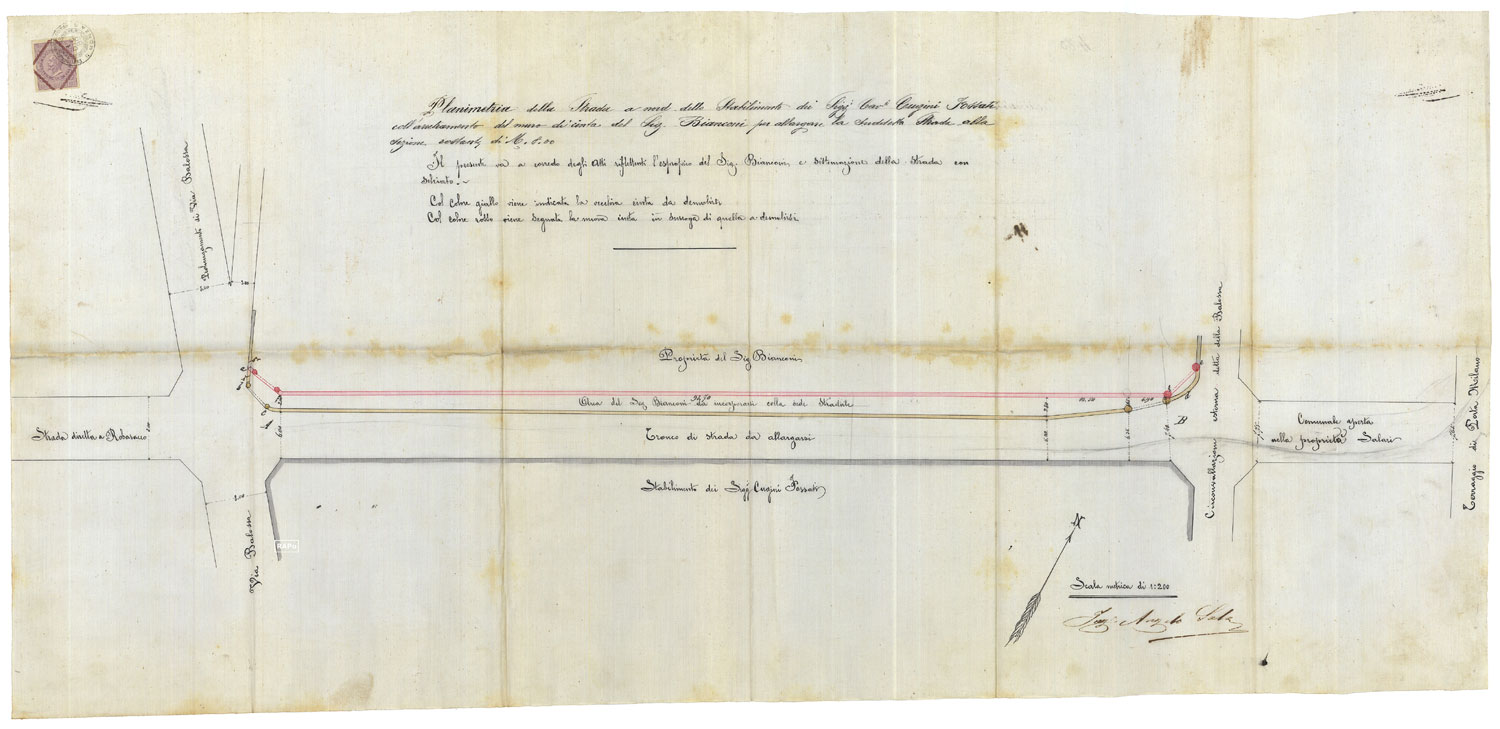 Planimetria della Strada a nord dello Stabilimento dei Sigj Cav. Cugini Fossati
coll'arretramento del muro di cinta del Sig. Bianconi per allargare la suddetta Strada alla
sezione costante di M. 8.00
Il presente va a corredo degli Atti riflettenti l'esproprio del Sig. Bianconi e sistemazione della Strada con
selciato.
Col colore giallo viene indicata la vecchia cinta da demolirsi
Col colore rosso viene segnata la nuova cinta in surroga di quella a demolirsi
Prolungamento di Via Balossa
Proprietà del Sig Bianconi
Area del Sig Bianconi da incorporarsi colla sede Stradale
Strada diretta a Robarello
Tronco di strada da allargarsi
Stabilimento dei Sigj Cugini Fossati
Via Balossa
RAPu
B
Circonvallazione esterna detta della Balossa
Comunale aperta
nella proprietà Salari
Terraggio di Porta Milano
N
Scala metrica di 1:200
Ing. Angelo